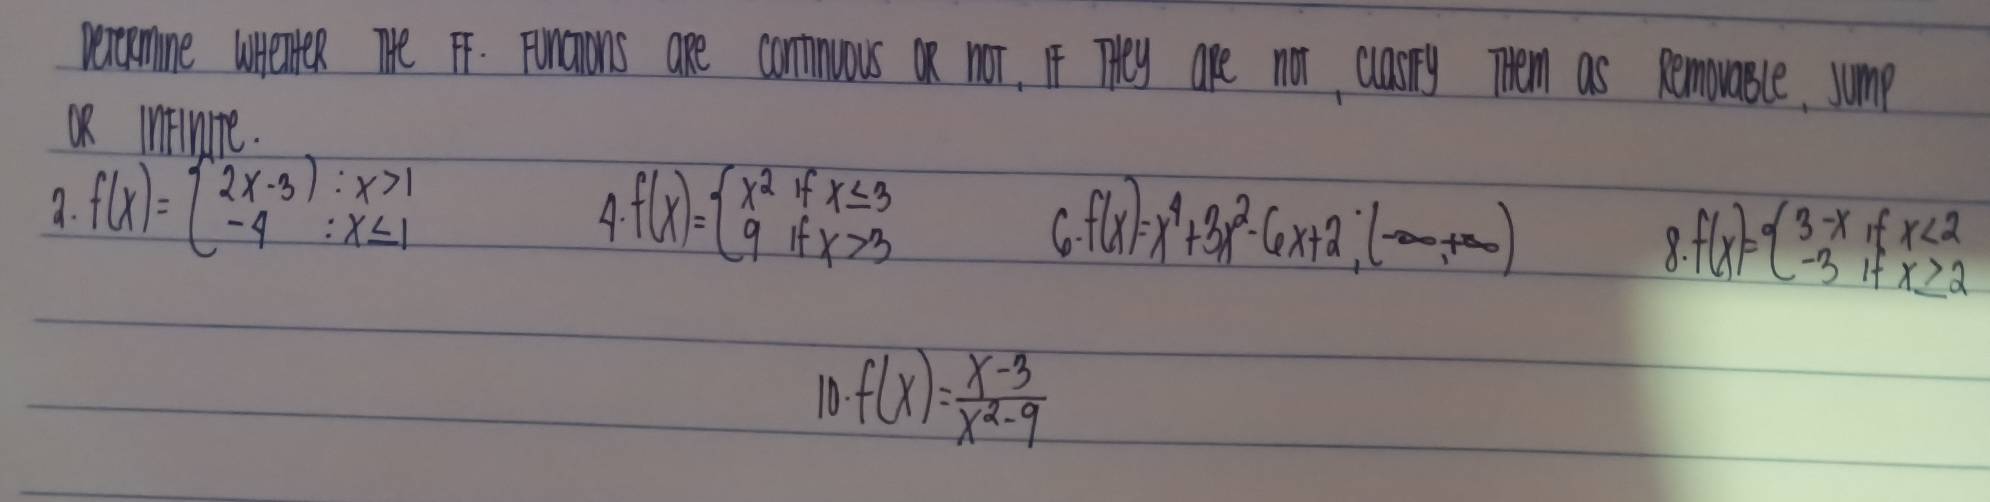 Determine whether the ff. functions are continuous or not, if they are not, clasify them as removable, jump
or infinite.
2. f(x) = { 2x-3) : x>1
-4 : x≤1
4. f(x) = { x² if x≤3
9 if x>3
6. f(x)=x⁴+3x²-6x+2 ; (-∞,+∞)
8. f(x)= { 3-x if x<2
-3 if x≥2
10. f(x) = x-3
x²-9